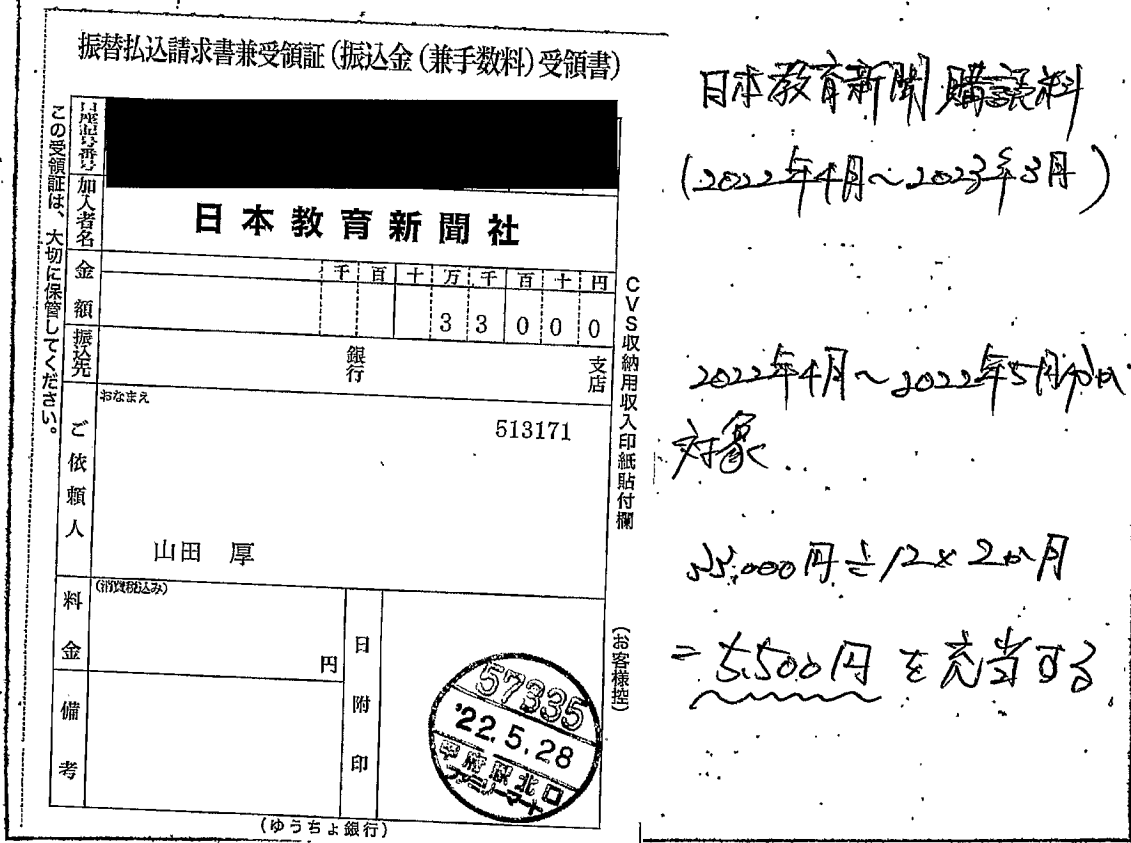 振替払込請求書兼受領証(振込金(兼手数料)受領書)
この受領証は、大切に保管してください。
口座記号番号
加入者名
日本教育新聞社
金額
千 百 十 万 千 百 十 円
3 3 0 0 0
振込先
銀行
支店
ご依頼人
おなまえ
513171
山田 厚
料金
(消費税込み)
円
備考
日附印
57335
'22.5.28
甲府駅北口
ファミリーマート
CVS収納用収入印紙貼付欄
(お客様控)
(ゆうちょ銀行)
日本教育新聞 購読料
(2022年4月~2023年3月)
2022年4月~2022年5月分が
対象
33,000円÷12×2か月
=5,500円を充当する